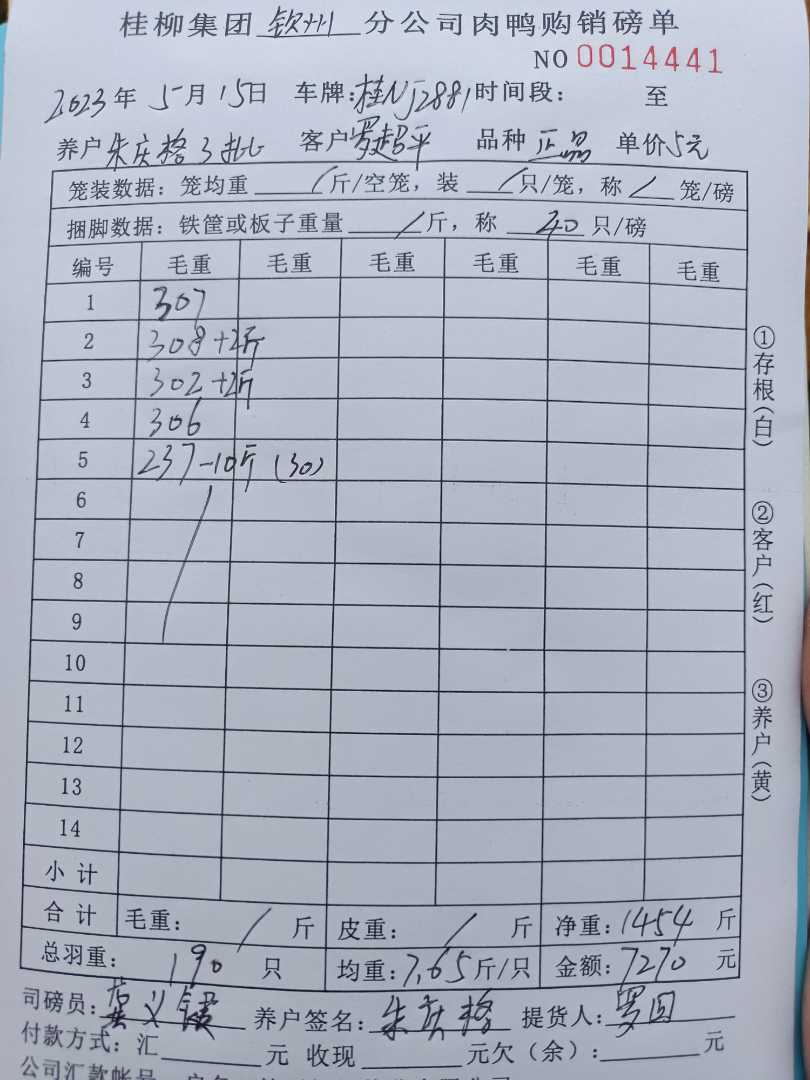 桂柳集团 钦州 分公司肉鸭购销磅单
NO 0014441
2023年 5月 15日 车牌:桂NJ2881 时间段: 至
养户 朱庆格3批 客户 罗超平 品种 正品 单价 5元
笼装数据:笼均重 / 斤/空笼,装 / 只/笼,称 / 笼/磅
捆脚数据:铁筐或板子重量 / 斤,称 40 只/磅
编号 毛重 毛重 毛重 毛重 毛重 毛重
1 307
2 308+2斤
3 302+2斤
4 306
5 237-10斤 (30)
6
7
8
9
10
11
12
13
14
小计
合计 毛重: / 斤 皮重: / 斤 净重: 1454 斤
总羽重: 190 只 均重: 7.65 斤/只 金额: 7270 元
司磅员: 养户签名: 朱庆格 提货人: 罗圆
付款方式:汇 元 收现 元欠(余): 元
公司汇款帐号
①存根(白)
②客户(红)
③养户(黄)